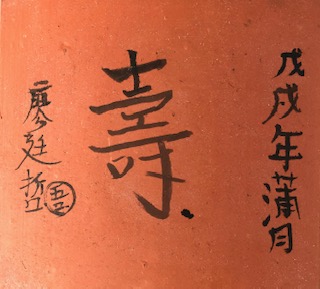 戊戌年蒲月
壽
廖廷哲